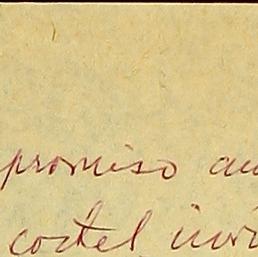 promiso au
coctel invi